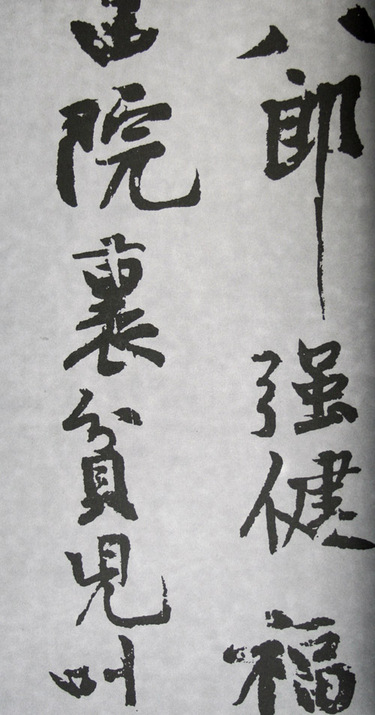 八郎强健福
院裏貧兒叫